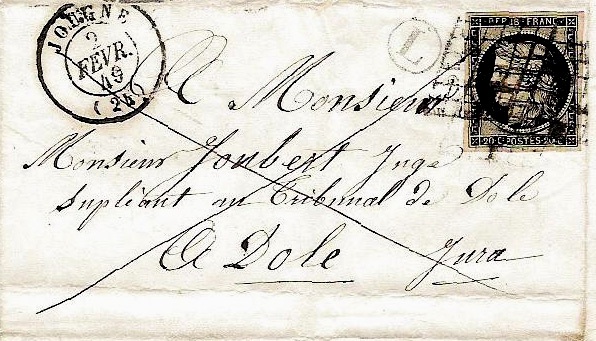 JOUGNE
2
FEVR.
49
(24)
L
REP. FRANC.
20·C·POSTES·20·C
A Monsieur
Monsieur Joubert Juge
supléant au Tribunal de Dole
A Dole Jura